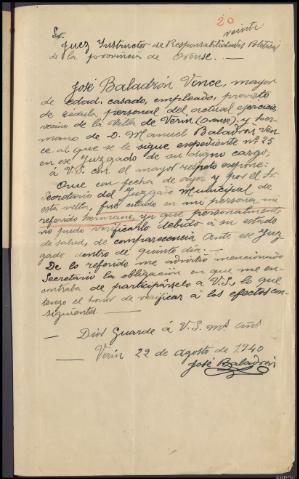 20
veinte
Sr.
Juez Instructor de Responsabilidades Políticas
de la provincia de Orense.—
José Baladrón Vence, mayor
de edad, casado, empleado, provisto
de cédula personal del actual ejercicio,
vecino de la Villa de Verín (Orense), y her-
mano de D. Manuel Baladrón Ven-
ce al que se le sigue expediente nº 25
en ese Juzgado de su digno cargo,
á V.S. con el mayor respeto expone:
Que con fecha de ayer y por el Se-
cretario del Juzgado Municipal de
esta villa, fué citado en mi persona, mi
referido hermano, ya que personalmente
no pudo verificarlo debido á su estado
de salud, de comparecencia ante ese Juz-
gado dentro de quinto dia.—
De lo referido me advirtió mencionado
Secretario la obligación en que me en-
contraba de participárselo á V.S., lo que
tengo el honor de verificar á los efectos con-
siguientes —
— Dios Guarde á V.S. ms. años
— Verín 22 de agosto de 1.940
José Baladrón